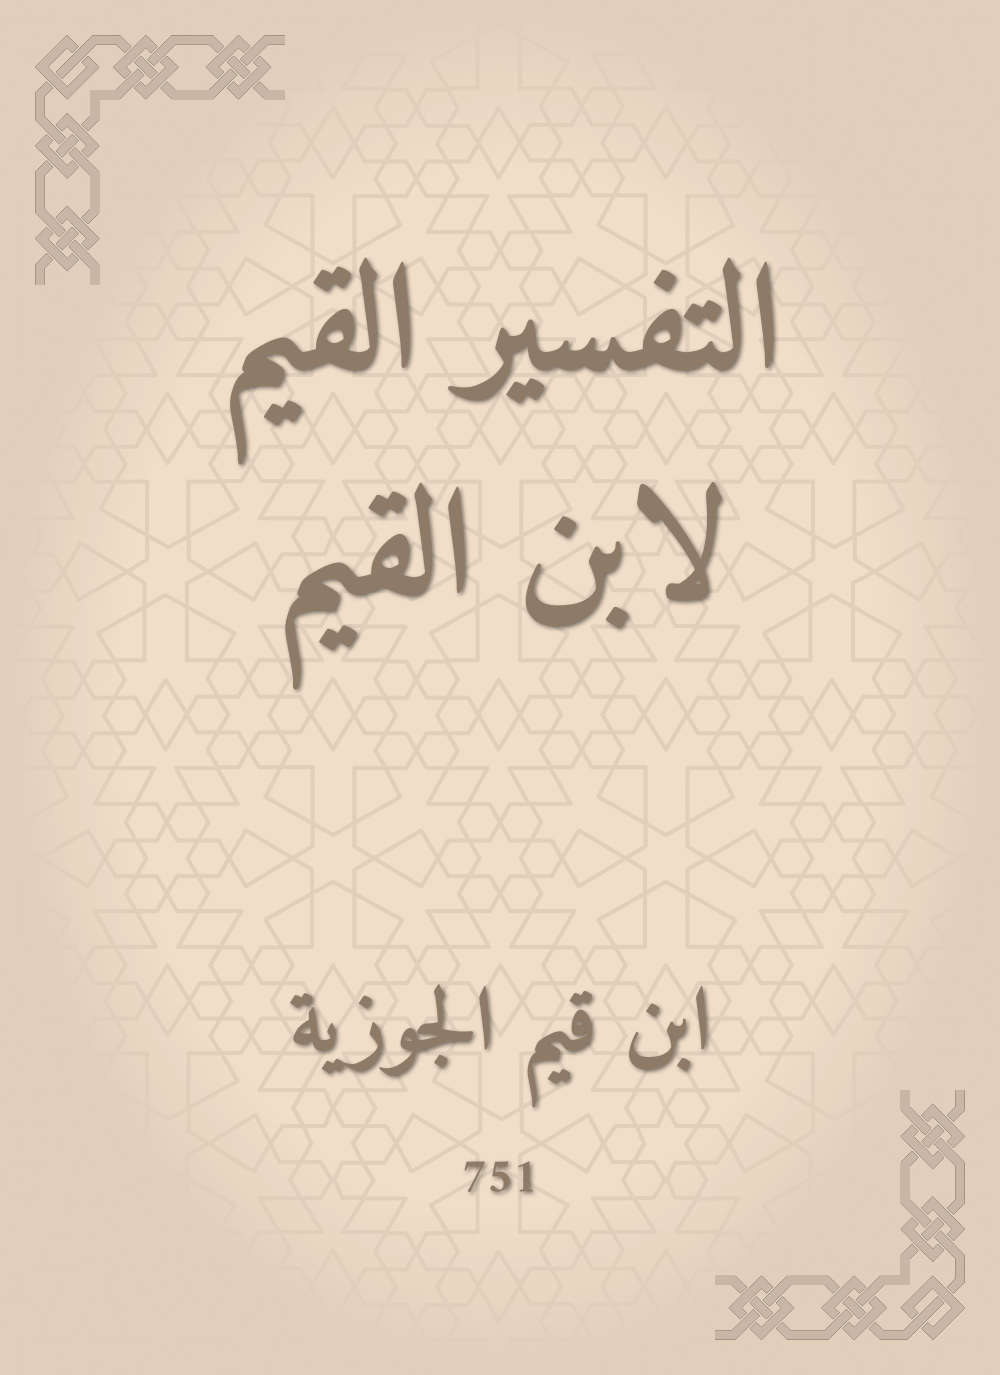 التفسير القيم
لابن القيم
ابن قيم الجوزية
751